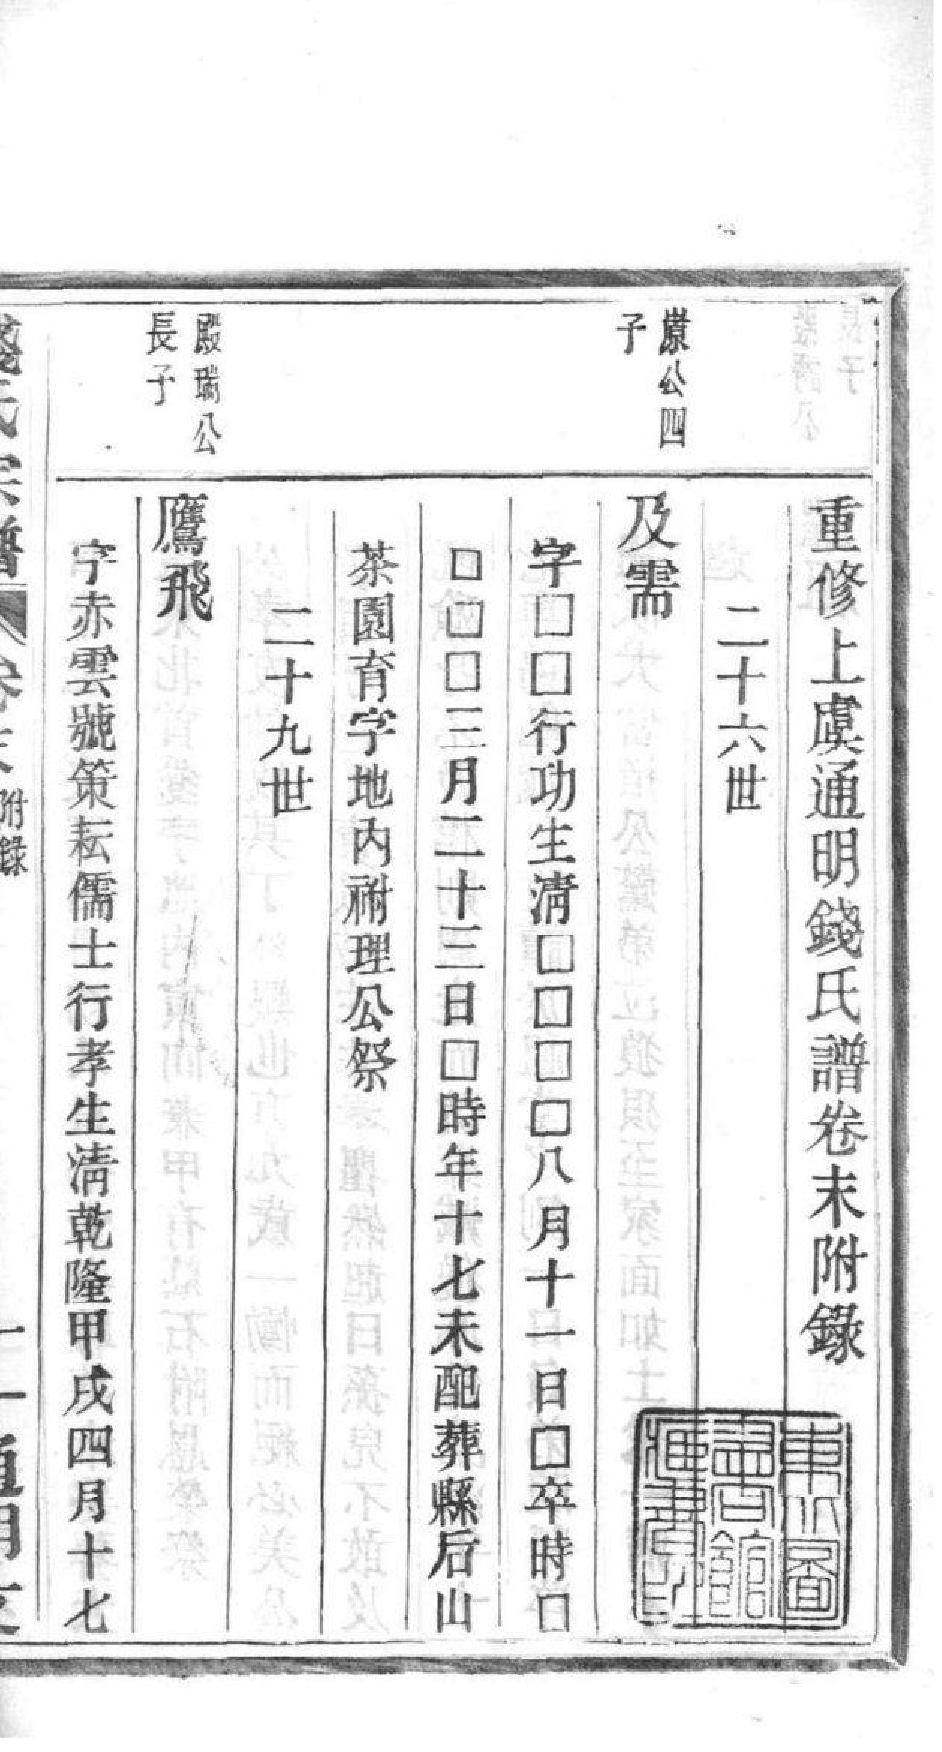 重修上虞通明錢氏譜卷末附錄
二十六世
㟲公四
子
及需
字□□行功生淸□□□□八月十一日□卒時□
□□□三月二十三日□時年十七未配葬縣后山
茶園育字地內祔理公祭
二十九世
殿瑞公
長子
鷹飛
字赤雲號策耘儒士行孝生淸乾隆甲戌四月十七
錢氏宗譜
卷末
附錄